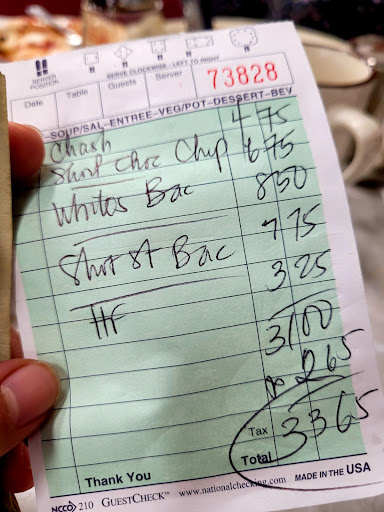 SERVE CLOCKWISE - LEFT TO RIGHT
SERVER POSITION
Date Table Guests Server 73828
-SOUP/SAL-ENTREE-VEG/POT-DESSERT-BEV
Chash 4 75
Shrt Choc Chip 6 75
Whites Bac 8 50
Shrt St Bac 7 75
HF 3 25
31 00
2 65
Tax
Total 33 65
Thank You
NCCO 210 GUESTCHECK™ www.nationalchecking.com MADE IN THE USA